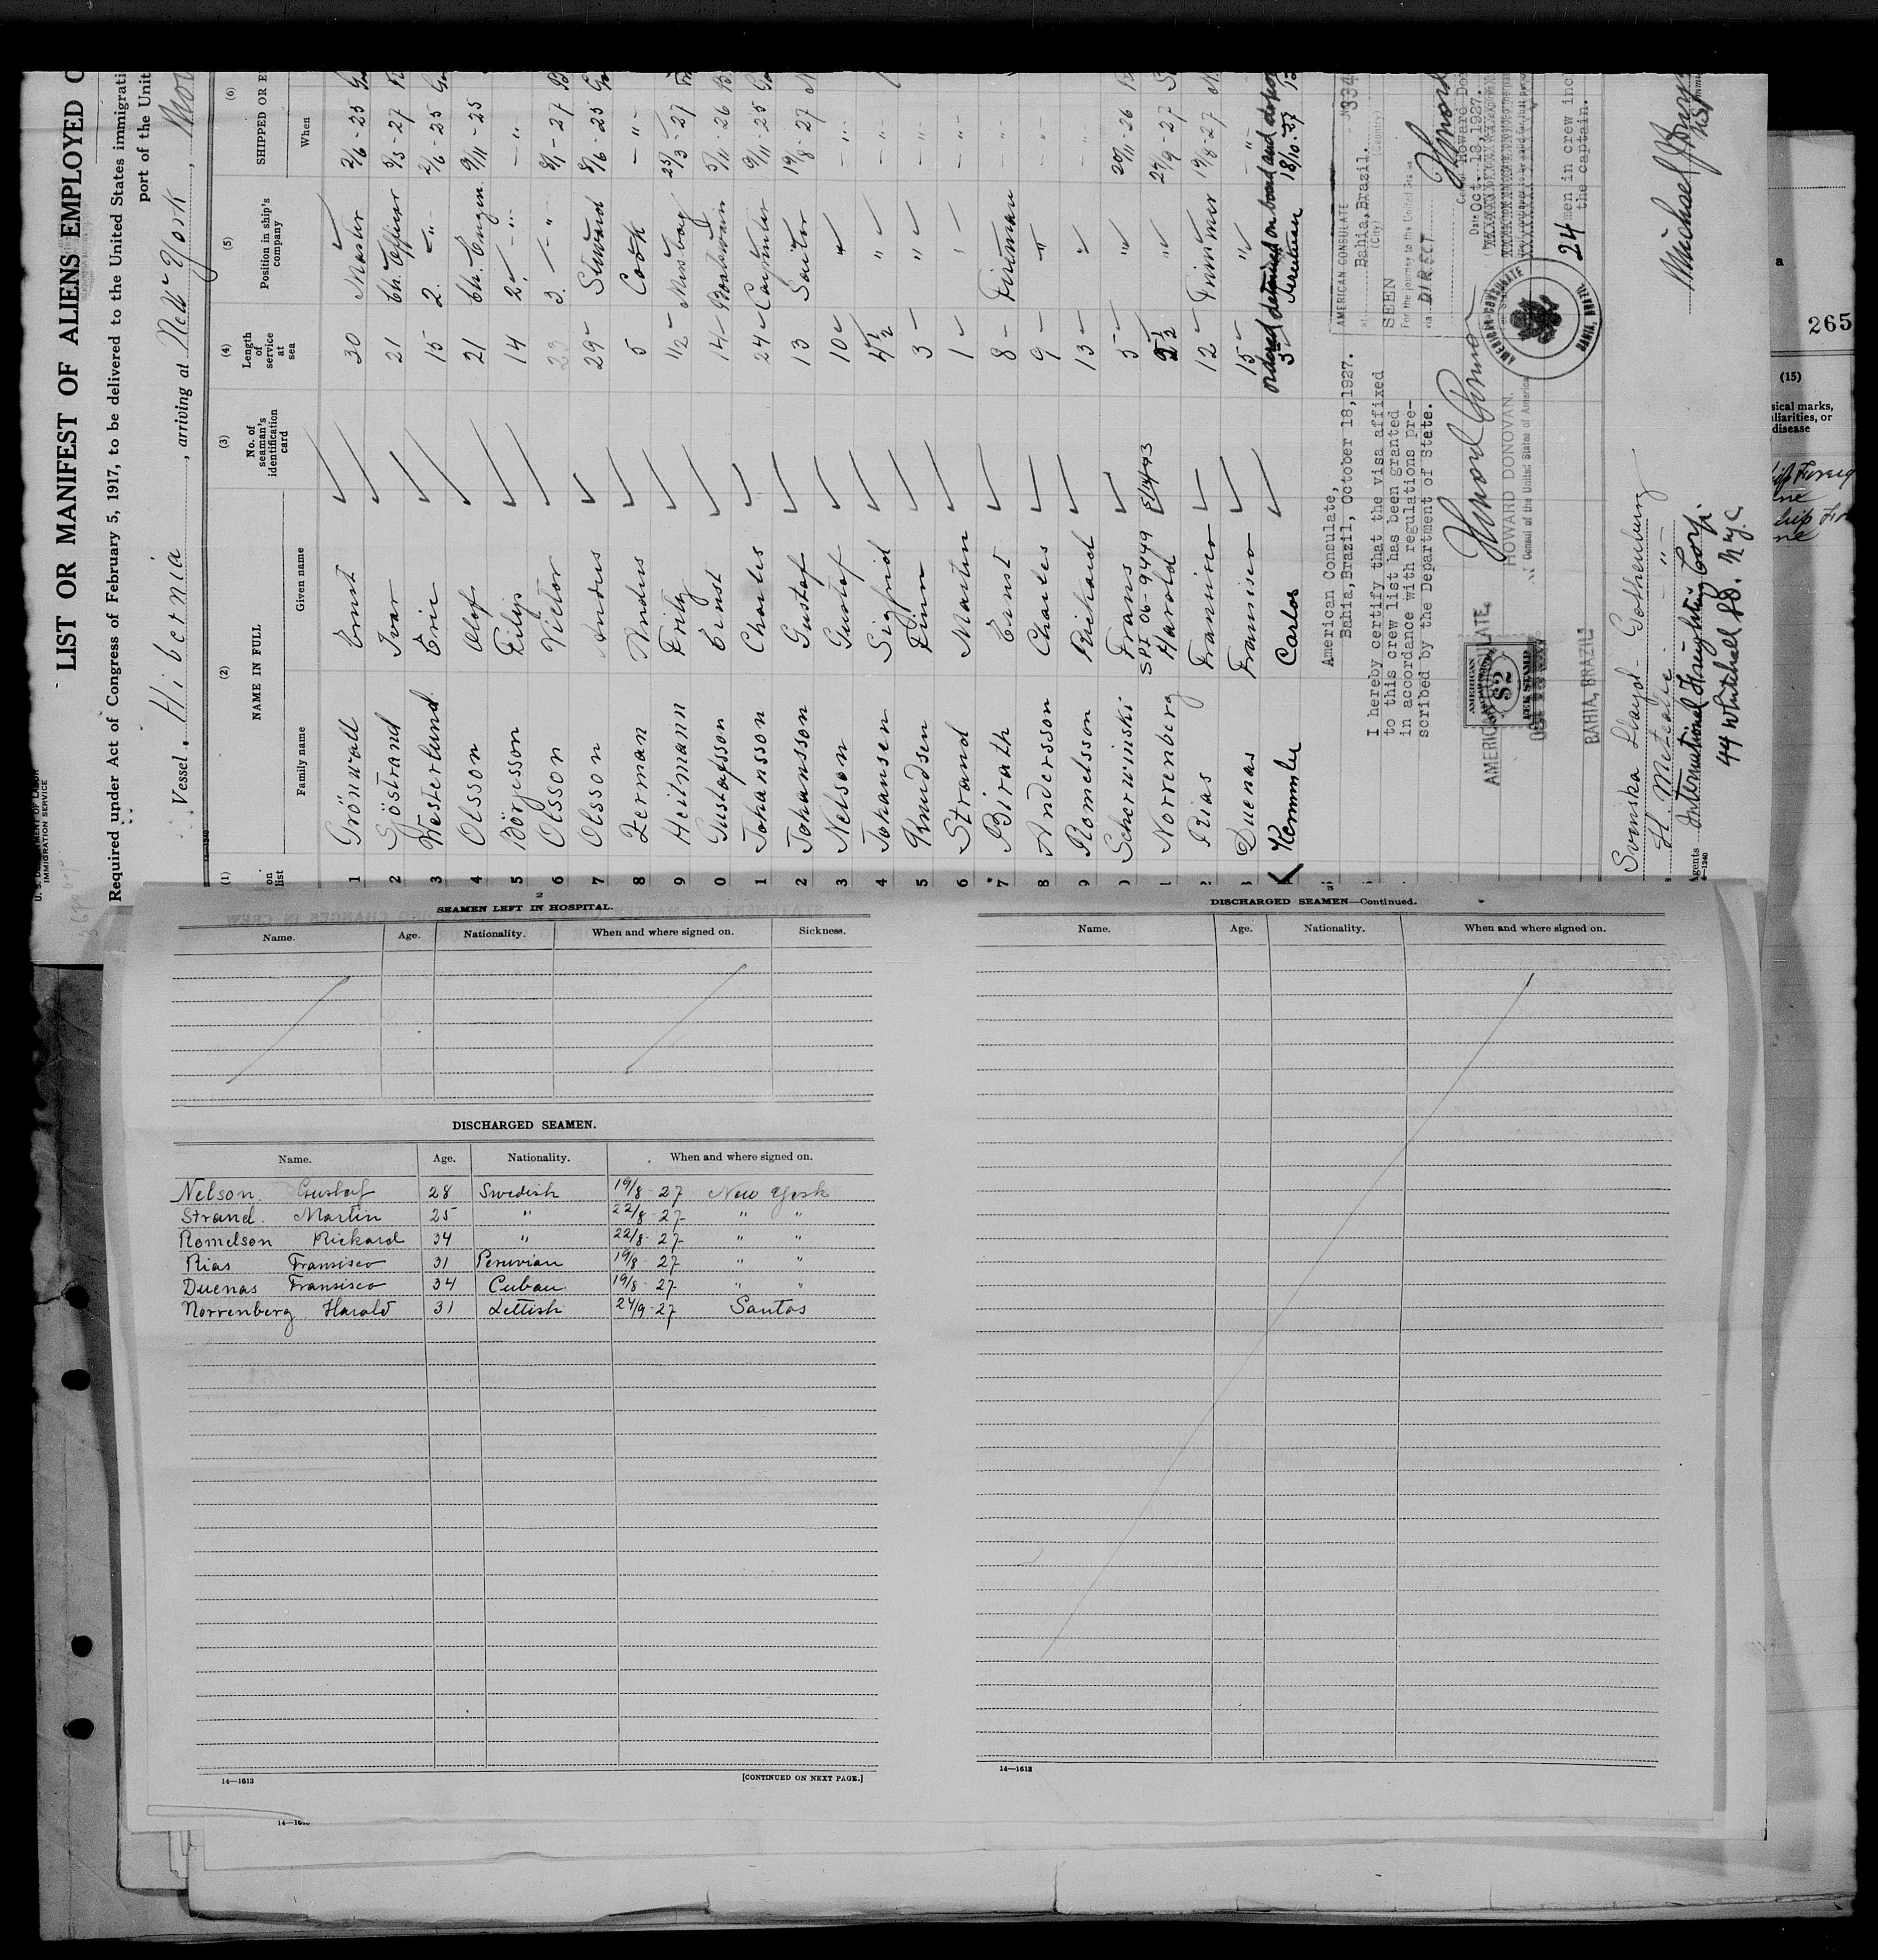 U. S. DEPARTMENT OF LABOR
IMMIGRATION SERVICE
LIST OR MANIFEST OF ALIENS EMPLOYED
Required under Act of Congress of February 5, 1917, to be delivered to the United States immigrati
port of the Unit
Vessel Hibernia, arriving at New York,
(1) (2) (3) (4) (5) (6)
on list NAME IN FULL No. of seaman's identification card Length of service at sea Position in ship's company SHIPPED OR E
Family name Given name When
1 Grönwall Ernst 30 Master 2/6 - 25
2 Sjöstrand Ivar 21 Ch. Officer 3/3 - 27
3 Westerlund Eric 15 2. " 2/6 - 25
4 Olsson Olof 21 Ch. Engin. 9/11 - 25
5 Börjesson Filip 14 2. " - " -
6 Olsson Victor 23 3. " 8/1 - 27
7 Olsson Anders 29 Steward 8/6 - 25
8 Zerman Anders 5 Cook - " -
9 Heilmann Fritz 1/2 Messboy 25/3 - 27
0 Gustafsson Ernst 14 Boatswain 5/11 - 26
1 Johansson Charles 24 Carpenter 9/11 - 25
2 Johansson Gustaf 13 Sailor 19/8 - 27
3 Nelson Gustaf 10 " - " -
4 Johansen Sigfrid 4 1/2 " - " -
5 Knudsen Finn 3 " - " -
6 Strand Martin 1 " - " -
7 Birath Ernst 8 Fireman - " -
8 Andersson Charles 9 " - " -
9 Romelsson Richard 13 " - " -
0 Scherwinski Frans 5 " 20/11 - 26
SPI 06-9449 5/14/43
1 Norrenberg Harald 2 1/2 " 24/9 - 27
2 Rias Fransisco 12 Trimmer 19/8 - 27
3 Duenas Fransisco 15 " - " -
ordered detained on board and depor
Kemmler Carlos 5 18/10.27
American Consulate,
Bahia, Brazil, October 18, 1927.
I hereby certify that the visa affixed
to this crew list has been granted
in accordance with regulations pre-
scribed by the Department of State.
HOWARD DONOVAN
Consul of the United States of America
AMERICAN CONSULATE
at Bahia, Brazil.
(City) (Country)
SEEN
For the journey to the United States
via DIRECT
Date Oct. 18, 1927.
24 men in crew incl
the captain.
AMERICAN CONSULATE
BAHIA, BRAZIL
AMERICAN
$2
FEE STAMP
AMERICAN CONSULATE.
BAHIA, BRAZIL
Svenska Lloyd - Gothenburg
H. Metcalfe - " -
Agents International Freighting Corp.
44 Whitehall St. N.Y.C
265
(15)
sical marks,
liarities, or
disease
2
SEAMEN LEFT IN HOSPITAL.
Name. Age. Nationality. When and where signed on. Sickness.
DISCHARGED SEAMEN.
Name. Age. Nationality. When and where signed on.
Nelson Gustaf 28 Swedish 19/8 - 27 New York
Strand. Martin 25 " 22/8 - 27 " "
Romelson Rickard 34 " 22/8 - 27 " "
Rias Fransisco 31 Peruvian 19/8 - 27 " "
Duenas Fransisco 34 Cuban 19/8 - 27 " "
Norrenberg Harald 31 Lettish 24/9 - 27 Santos
14—1613 [CONTINUED ON NEXT PAGE.]
3
DISCHARGED SEAMEN—Continued.
Name. Age. Nationality. When and where signed on.
14—1613